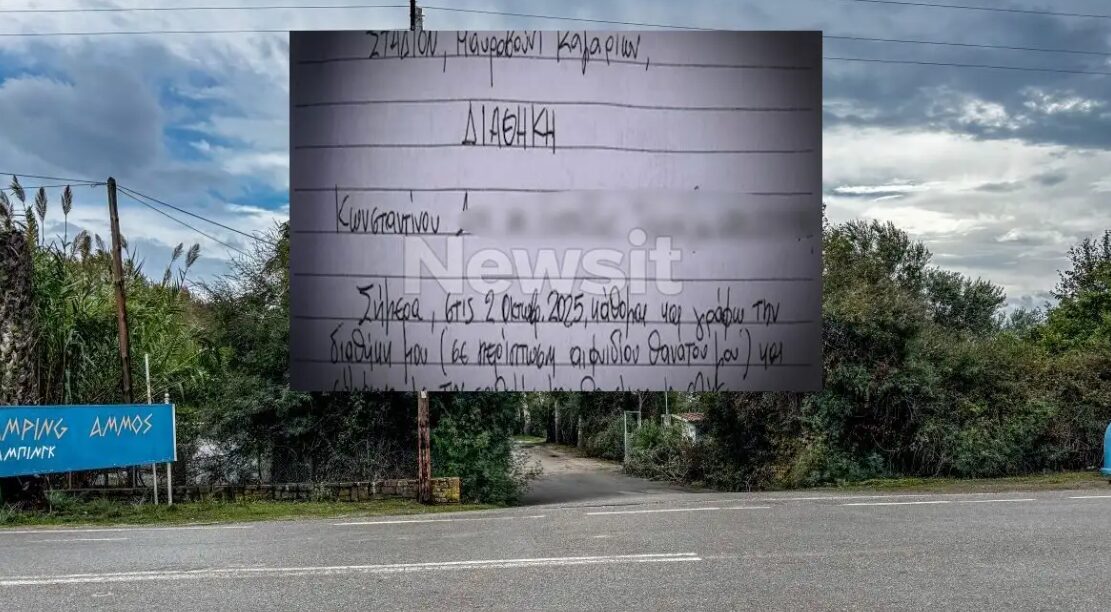 ΣΤΑΔΙΟΝ, Μαυροβούνι
ΔΙΑΘΗΚΗ
Κωνσταντίνου
Newsit
Σήμερα, στις 2 Οκτωβ. 2025, κάθομαι και γράφω την
διαθήκη μου (σε περίπτωση αιφνιδίου θανάτου μου) και
AMPING ΑΜΜΟΣ
ΑΜΠΙΝΓΚ